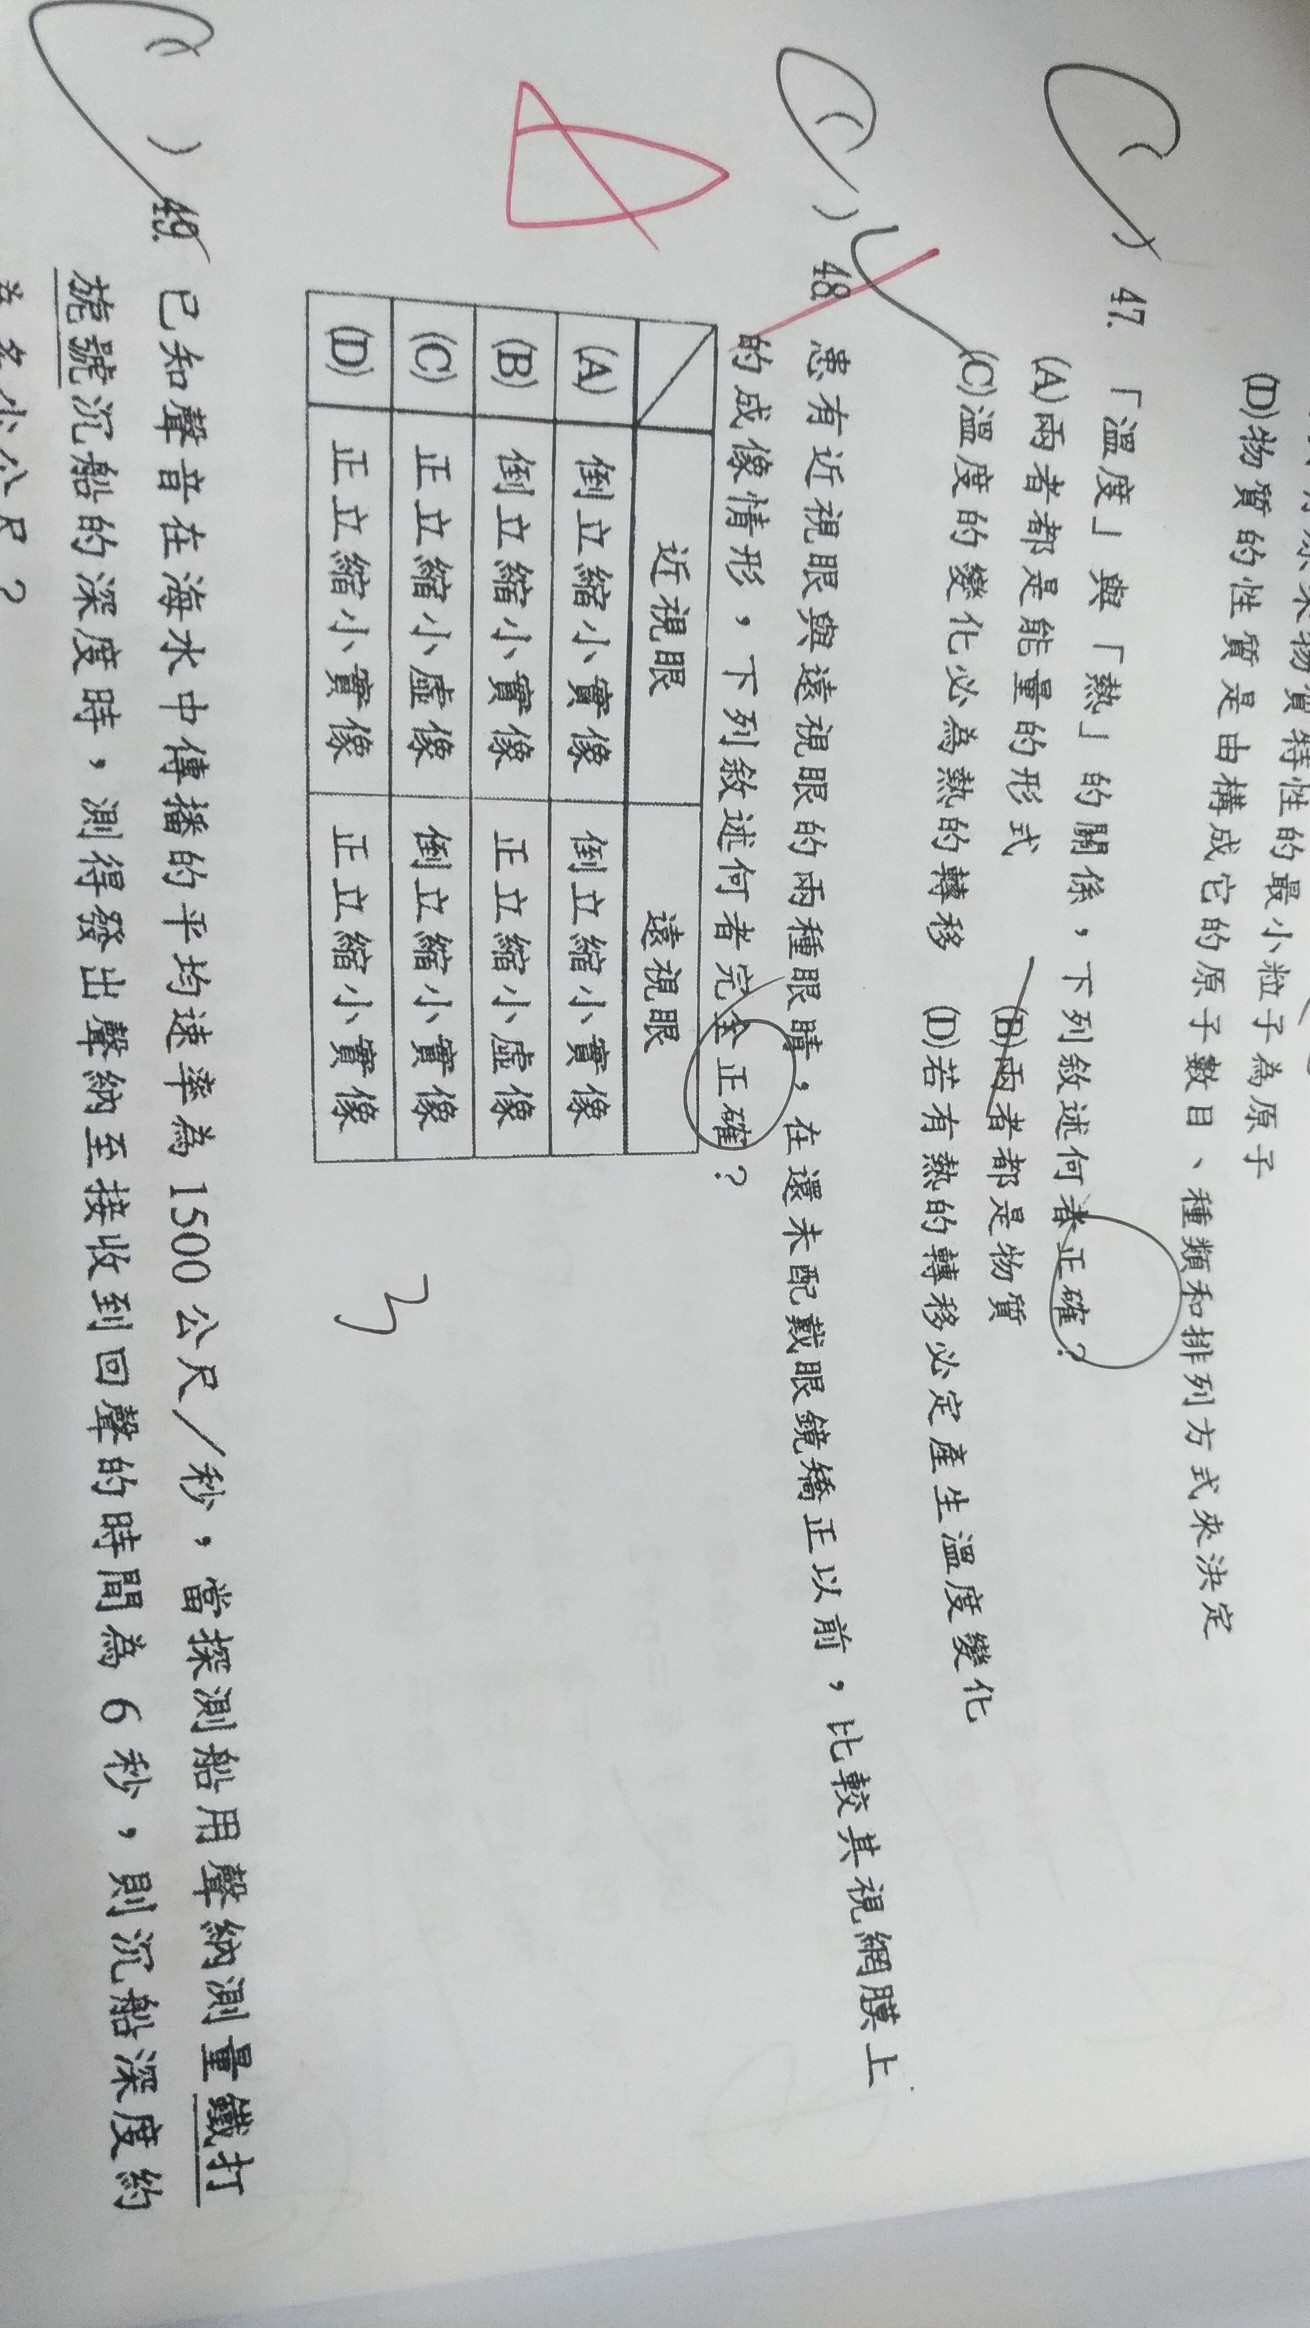 物質特性的最小粒子為原子
(D)物質的性質是由構成它的原子數目、種類和排列方式來決定
( ) 47. 「溫度」與「熱」的關係，下列敘述何者正確？
(A)兩者都是能量的形式 (B)兩者都是物質
(C)溫度的變化必為熱的轉移 (D)若有熱的轉移必定產生溫度變化
( ) 48. 患有近視眼與遠視眼的兩種眼睛，在還未配戴眼鏡矯正以前，比較其視網膜上
的成像情形，下列敘述何者完全正確？
近視眼 遠視眼
(A) 倒立縮小實像 倒立縮小實像
(B) 倒立縮小實像 正立縮小虛像
(C) 正立縮小虛像 倒立縮小實像
(D) 正立縮小實像 正立縮小實像
3
( ) 49. 已知聲音在海水中傳播的平均速率為 1500 公尺／秒，當探測船用聲納測量鐵打
旎號沉船的深度時，測得發出聲納至接收到回聲的時間為 6 秒，則沉船深度約
為多少公尺？